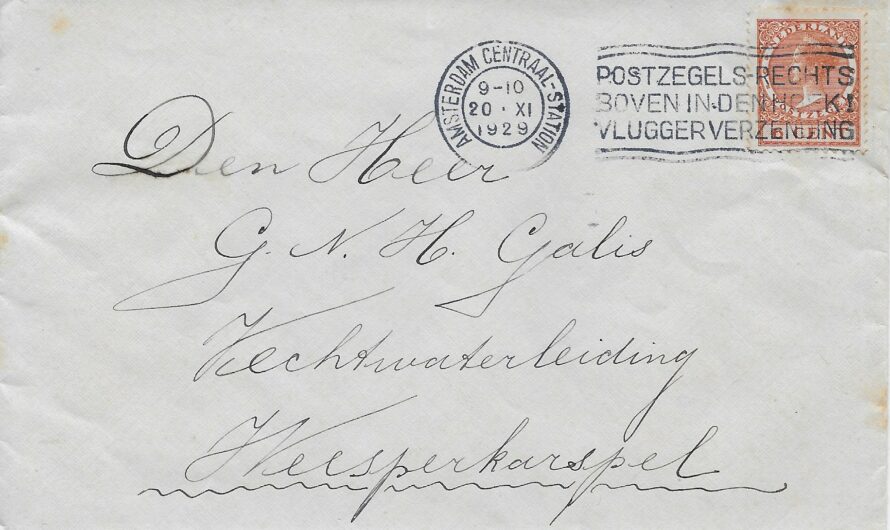 AMSTERDAM CENTRAAL-STATION
9-10
20 · XI
1929
POSTZEGELS-RECHTS
BOVEN IN-DEN HOEK!
VLUGGER VERZENDING
NEDERLAND
Den Heer
G. N. H. Galis
Vechtwaterleiding
Weesperkarspel